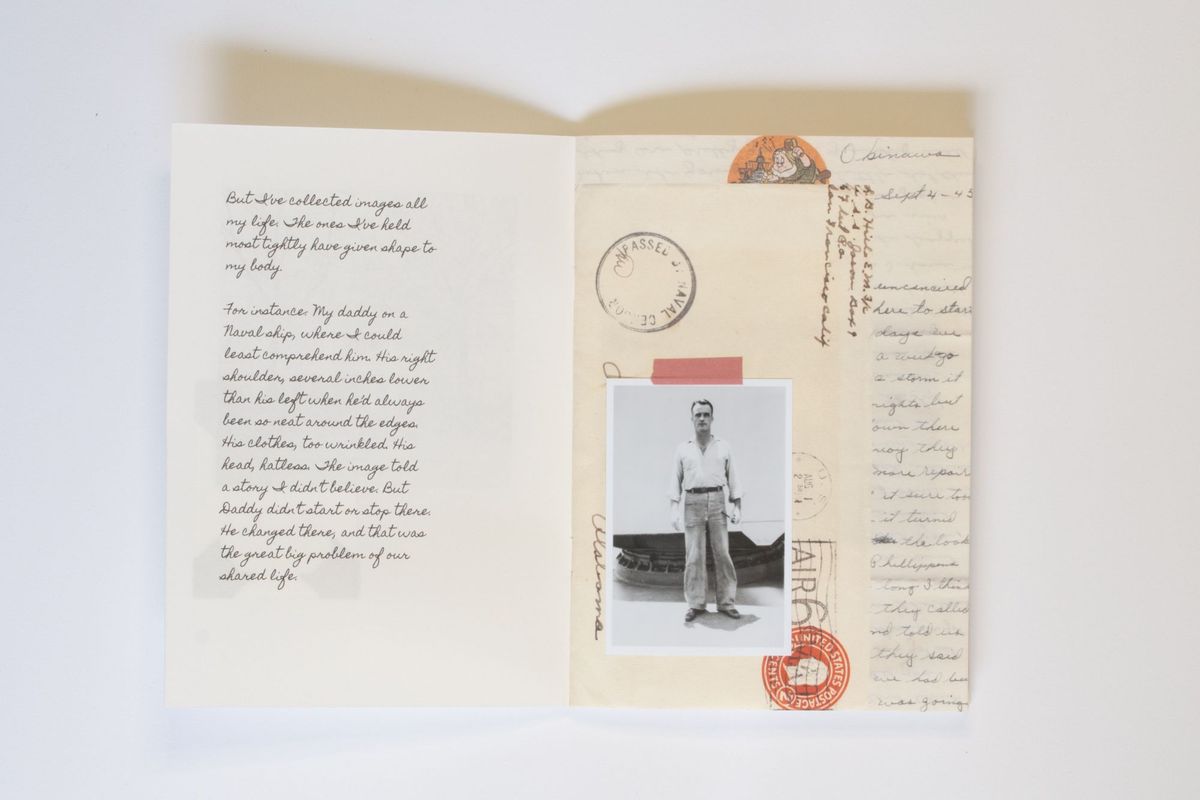 But I've collected images all
my life. The ones I've held
most tightly have given shape to
my body.
For instance: My daddy on a
Naval ship, where I could
least comprehend him. His right
shoulder, several inches lower
than his left when he'd always
been so neat around the edges.
His clothes, too wrinkled. His
head, hatless. The image told
a story I didn't believe. But
Daddy didn't start or stop there.
He changed there, and that was
the great big problem of our
shared life.
PASSED NAVAL CENSOR
San Francisco Calif
Alabama
AUG 1
AIR
6
UNITED STATES POSTAGE
CENTS
Okinawa
Sept 4-45
uncensored
here to
days
a week
storm it
but
down there
they
more repair
it sure
it turned
the look
long I
they
told us
they said
had
was going